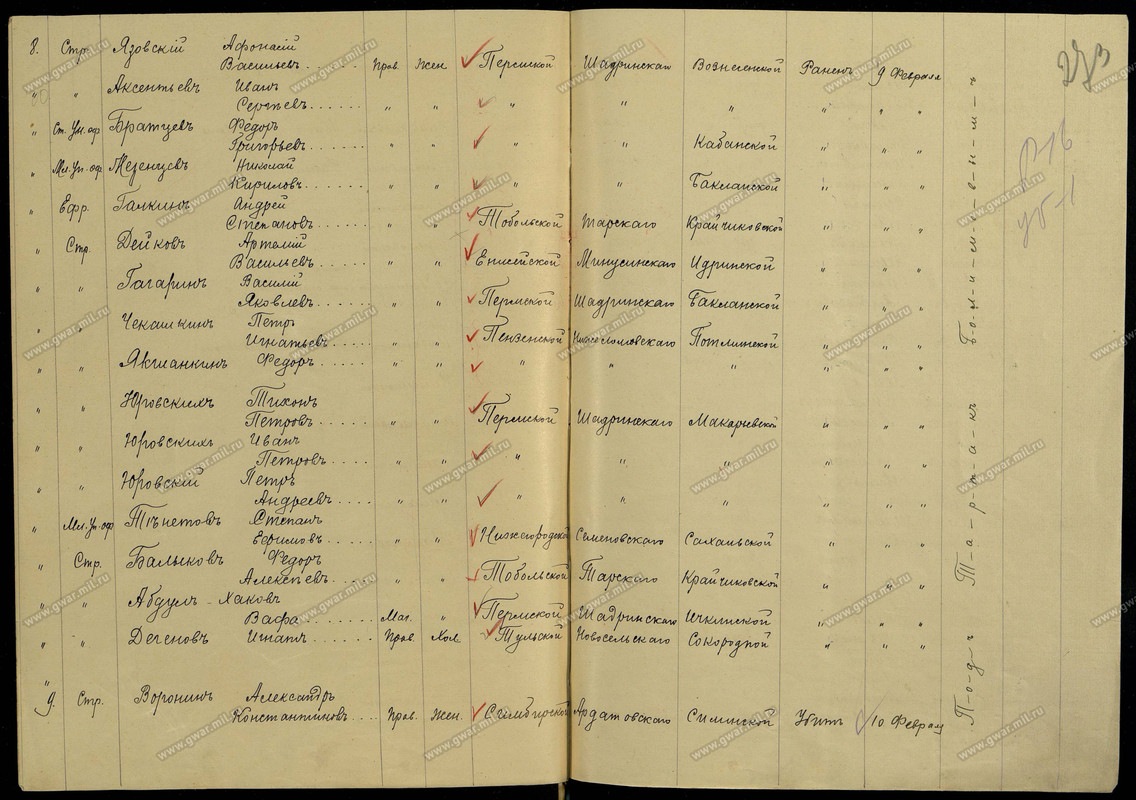 8. Стр. Язовскій Афонасій
Васильевъ..... Прав. Жен. Пермской Шадринскаго Вознесенской Раненъ 9 Февраля
" " Аксентьевъ Иванъ
Сергѣевъ..... " " " " " " " "
" Ст. Ун. оф. Братцевъ Федоръ
Григорьевъ..... " " " " Кабанской " " "
" Мл. Ун. оф. Мезенцевъ Николай
Кириловъ..... " " " " Бакланской " " "
" Ефр. Галкинъ Андрей
Степановъ..... " " Тобольской Тарскаго Крайчиковской " " "
" Стр. Дейковъ Артемій
Васильевъ..... " " Енисейской Минусинскаго Идринской " " "
" " Гагаринъ Василій
Яковлевъ..... " " Пермской Шадринскаго Бакланской " " "
" " Чекашкинъ Петръ
Игнатьевъ..... " " Пензенской " " "
" " Акшанкинъ Федоръ..... " " " " " " " "
" " Юровскихъ Тихонъ
Петровъ..... " " Пермской Шадринскаго Макарьевской " " "
" " Юровскихъ Иванъ
Петровъ..... " " " " " " " "
" " Юровскій Петръ
Андреевъ..... " " " " " " " "
" Мл. Ун. оф. Тѣнетовъ Степанъ
Ефимовъ..... " " Нижегородской Семеновскаго " " "
" Стр. Балыковъ Федоръ
Алексѣевъ..... " " Тобольской Тарскаго Крайчиковской " " "
" " Абдулъ-Хаковъ
Вафа..... Маг. " Пермской Шадринскаго Ичкинской " " "
" " Дегеновъ Игнатъ..... Прав. Хол. Тульской Новосельскаго " " "
" 9. Стр. Воронинъ Александръ
Константиновъ..... Прав. Жен. Симбирской Ардатовскаго Силинской Убитъ 10 Февраля
П-о-д-ъ Т-а-р-т-а-к-ъ
273
р-16
уб-1
www.gwar.mil.ru